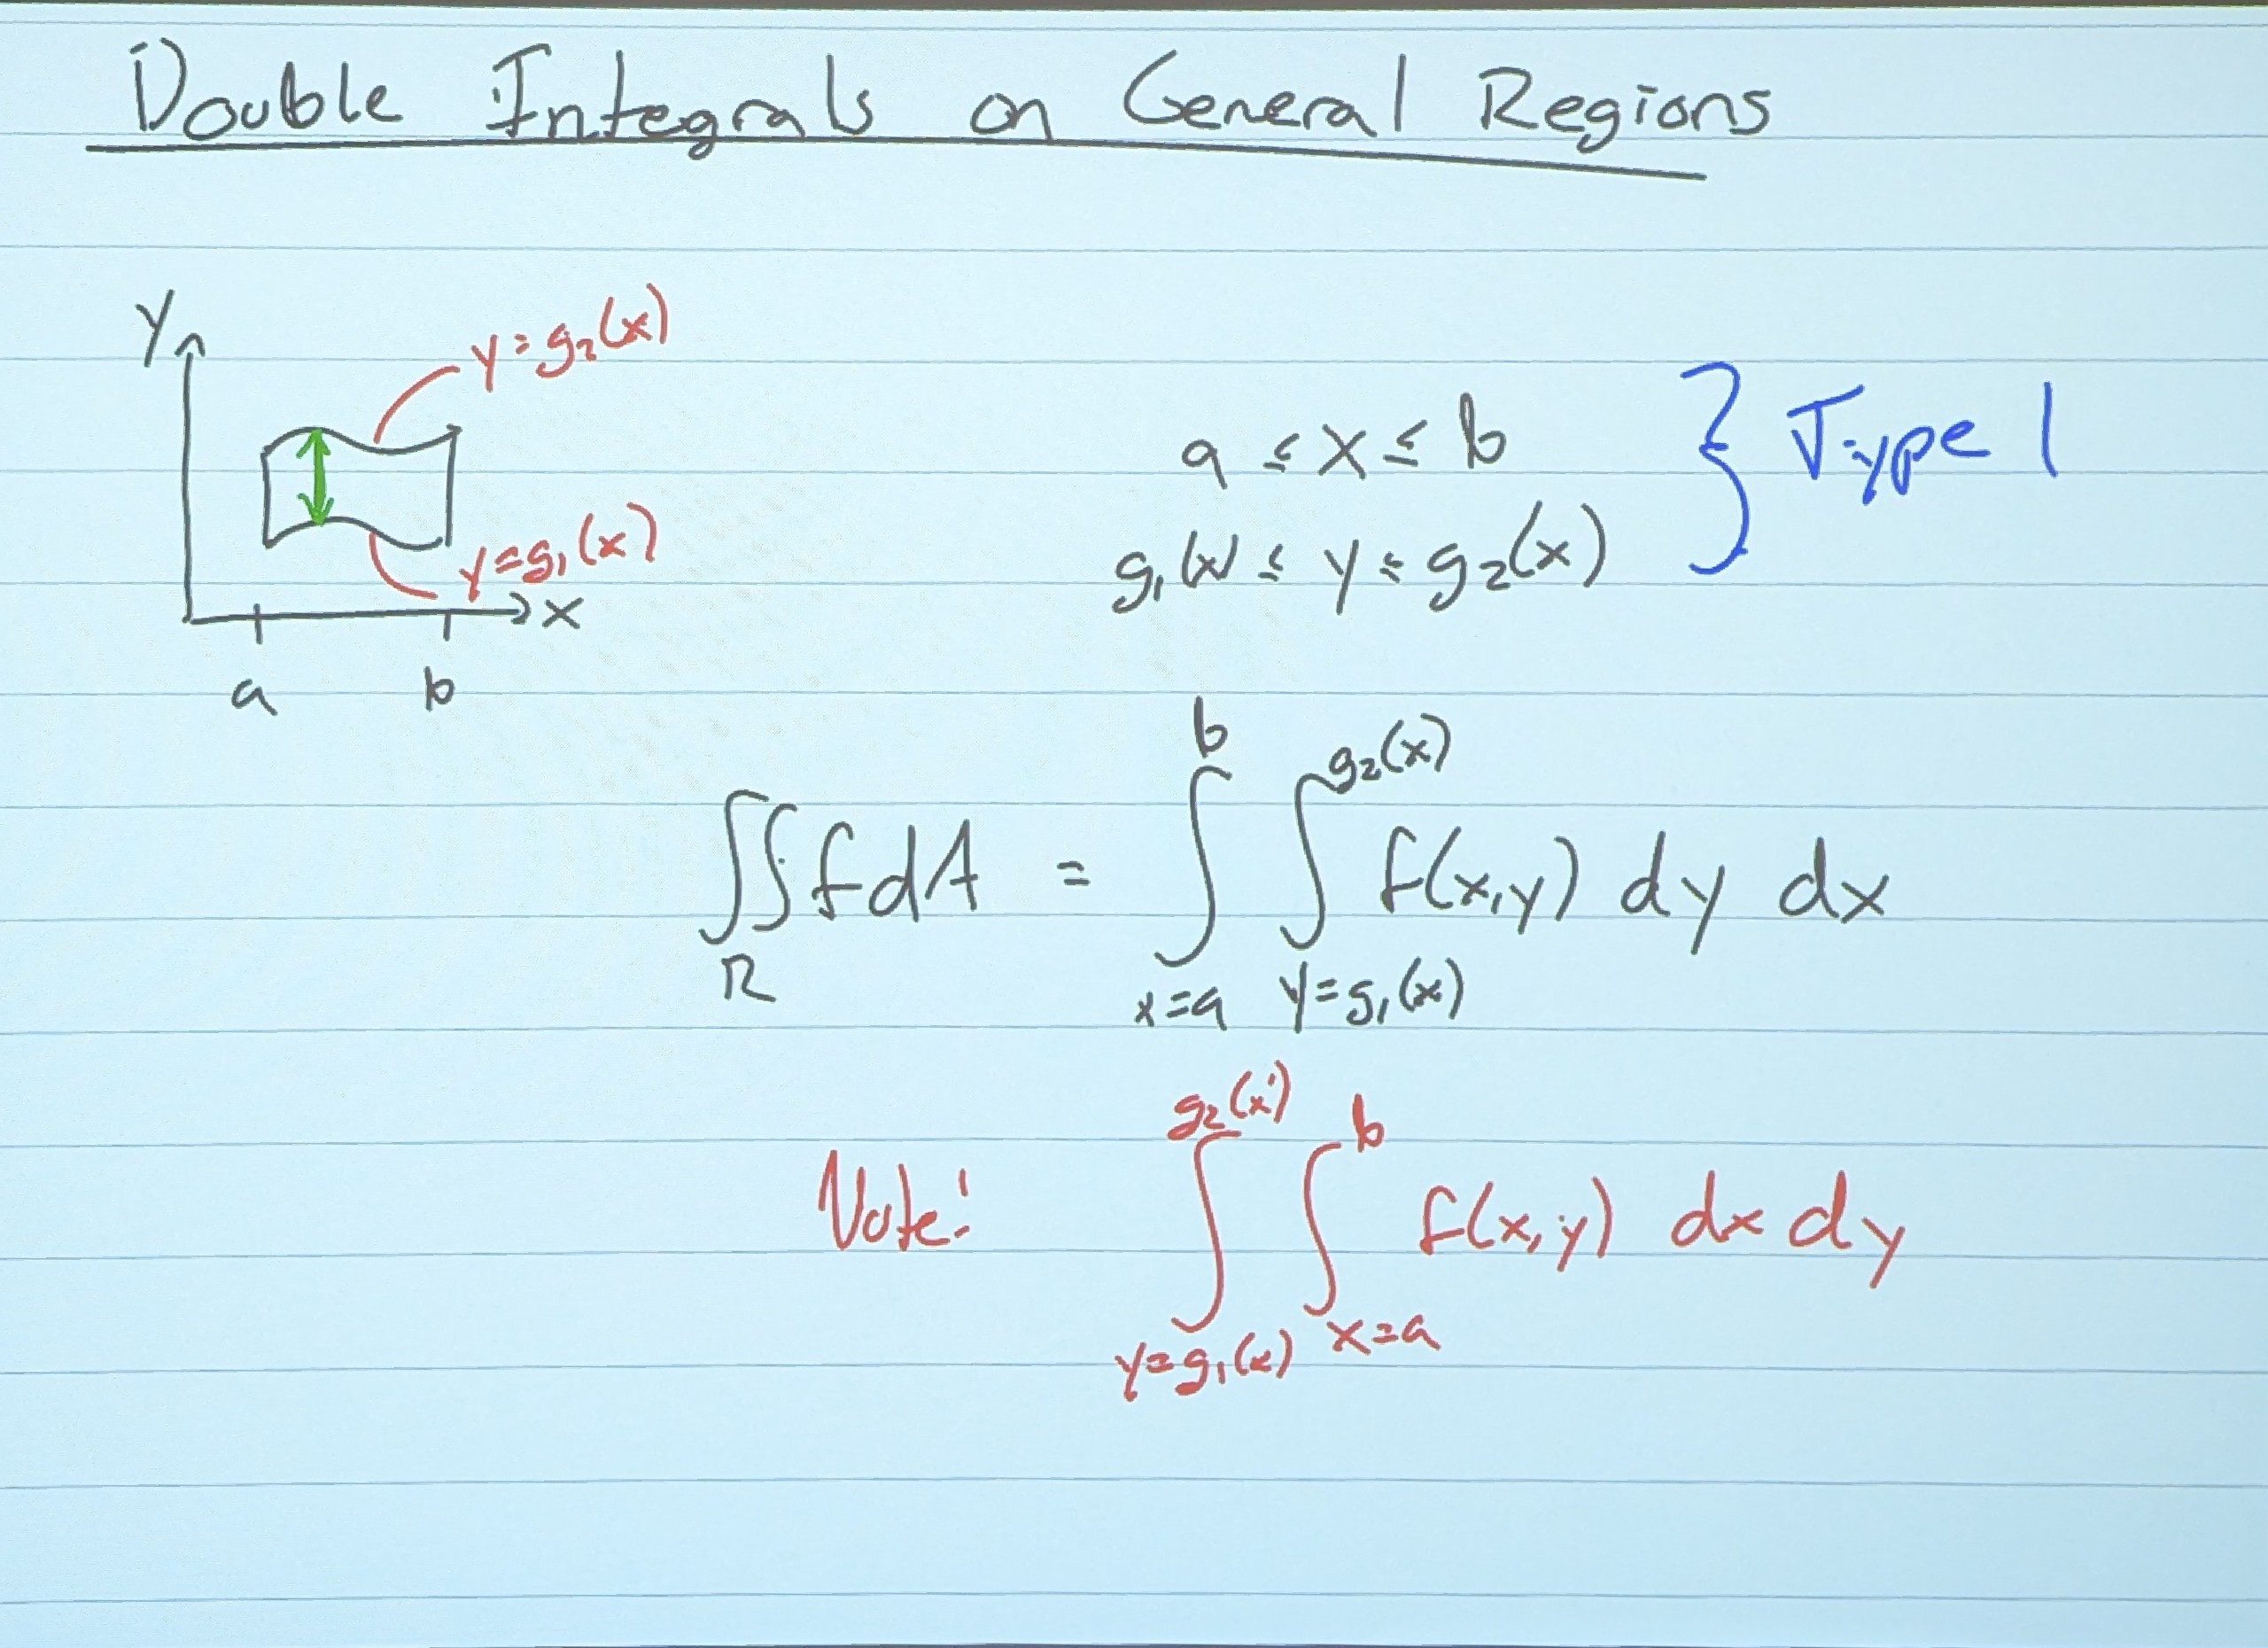 Double Integrals on General Regions
y
y = g₂(x)
y = g₁(x)
x
a b
a ≤ x ≤ b
g₁(x) ≤ y ≤ g₂(x)
} Type 1
∬_R f dA = ∫_{x=a}^{b} ∫_{y=g₁(x)}^{g₂(x)} f(x,y) dy dx
Note: ∫_{y=g₁(x)}^{g₂(x)} ∫_{x=a}^{b} f(x,y) dx dy